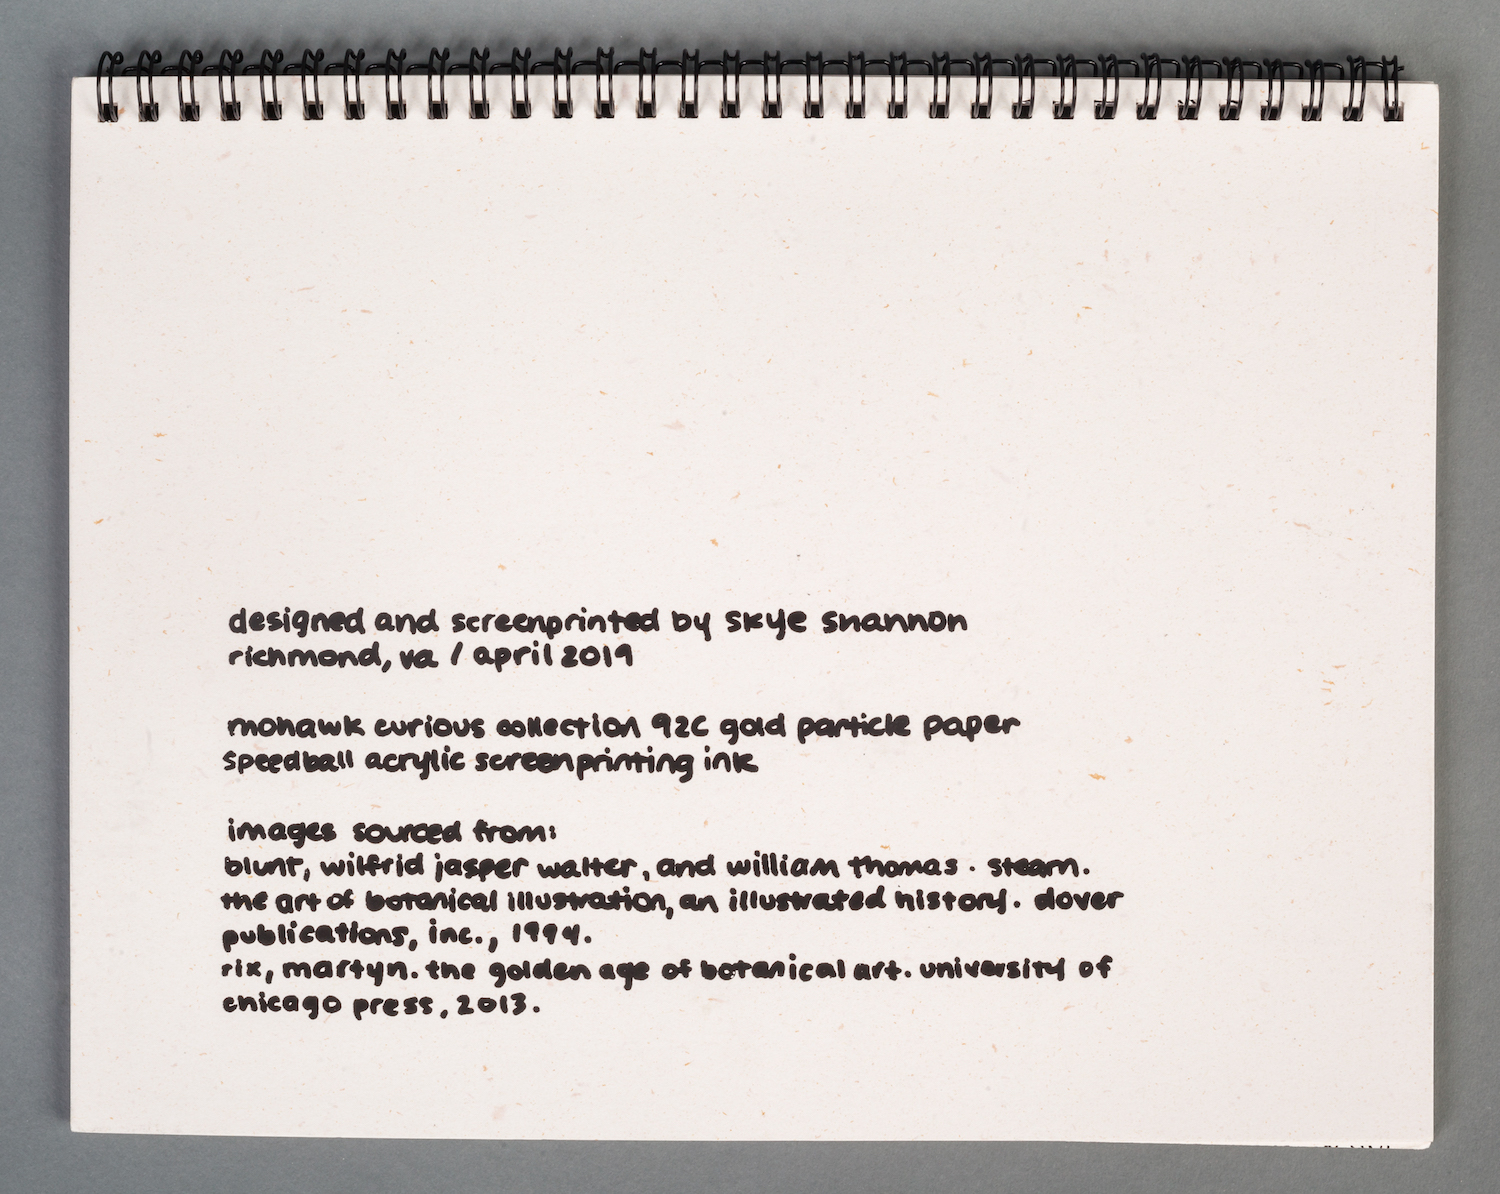 designed and screenprinted by skye shannon
richmond, va / april 2019
mohawk curious collection 92C gold particle paper
speedball acrylic screenprinting ink
images sourced from:
blunt, wilfrid jasper walter, and william thomas . stearn.
the art of botanical illustration, an illustrated history. dover
publications, inc., 1994.
rix, martyn. the golden age of botanical art. university of
chicago press, 2013.